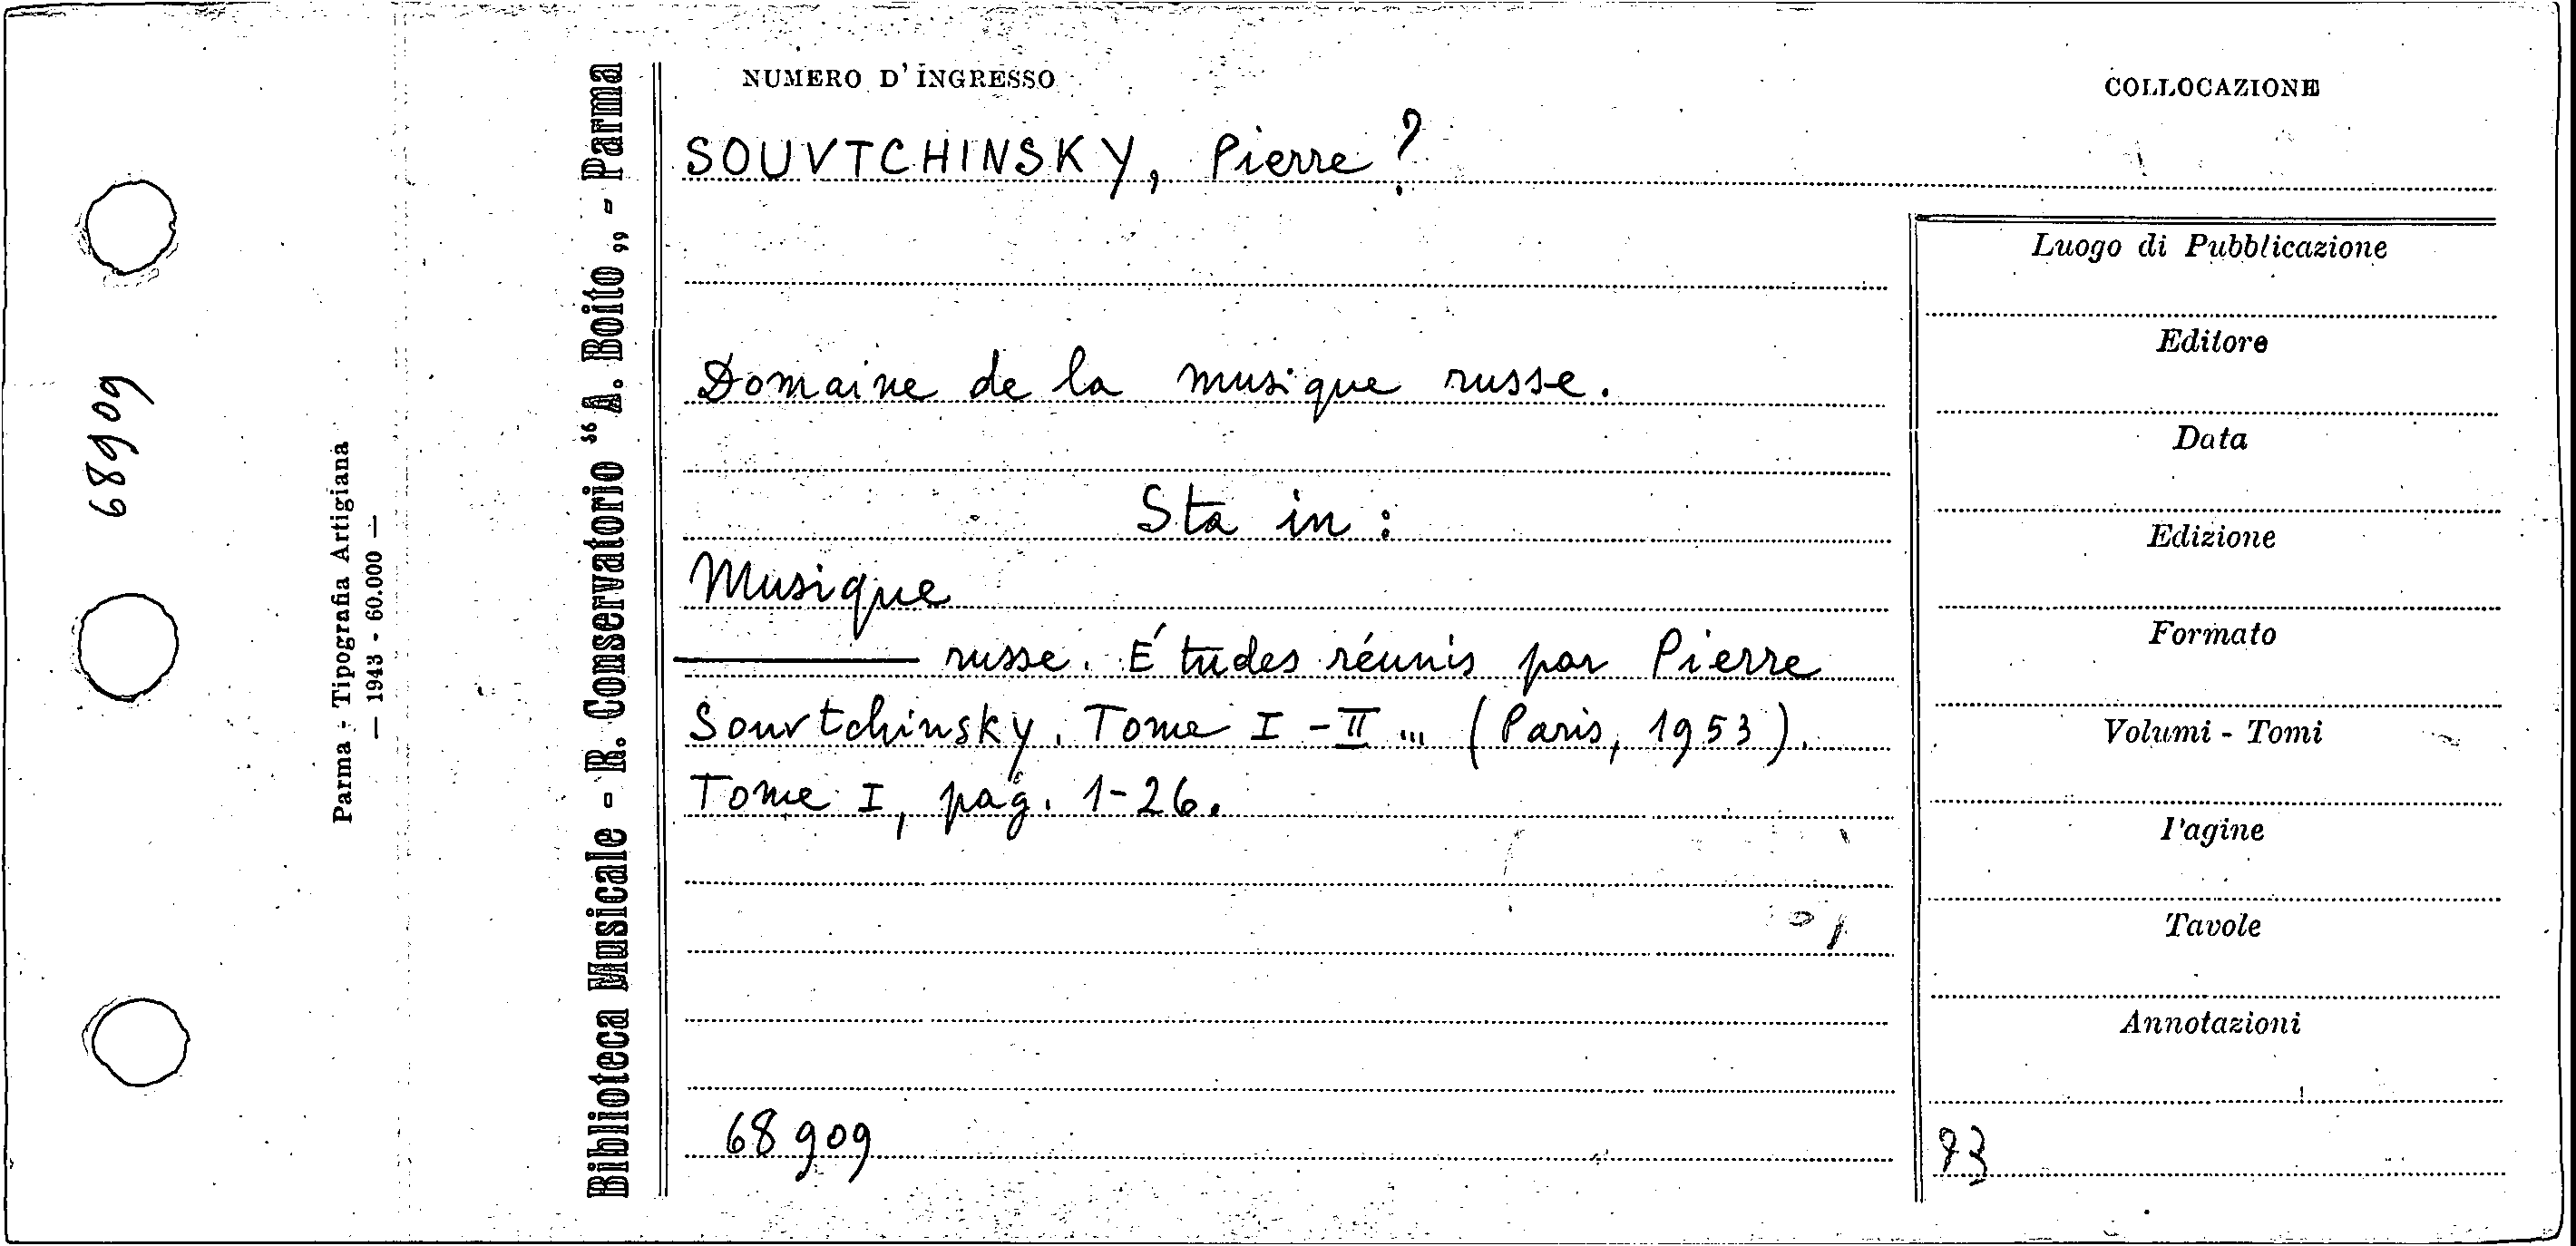 68909
Parma - Tipografia Artigiana
— 1943 - 60.000 —
Biblioteca Musicale - R. Conservatorio “A. Boito„ - Parma
NUMERO D'INGRESSO
COLLOCAZIONE
SOUVTCHINSKY, Pierre ?
Domaine de la musique russe.
Sta in :
Musique
——— russe. Études réunis par Pierre
Souvtchinsky. Tome I - II ... (Paris, 1953).
Tome I, pag. 1-26.
68909
Luogo di Pubblicazione
Editore
Data
Edizione
Formato
Volumi - Tomi
Pagine
Tavole
Annotazioni